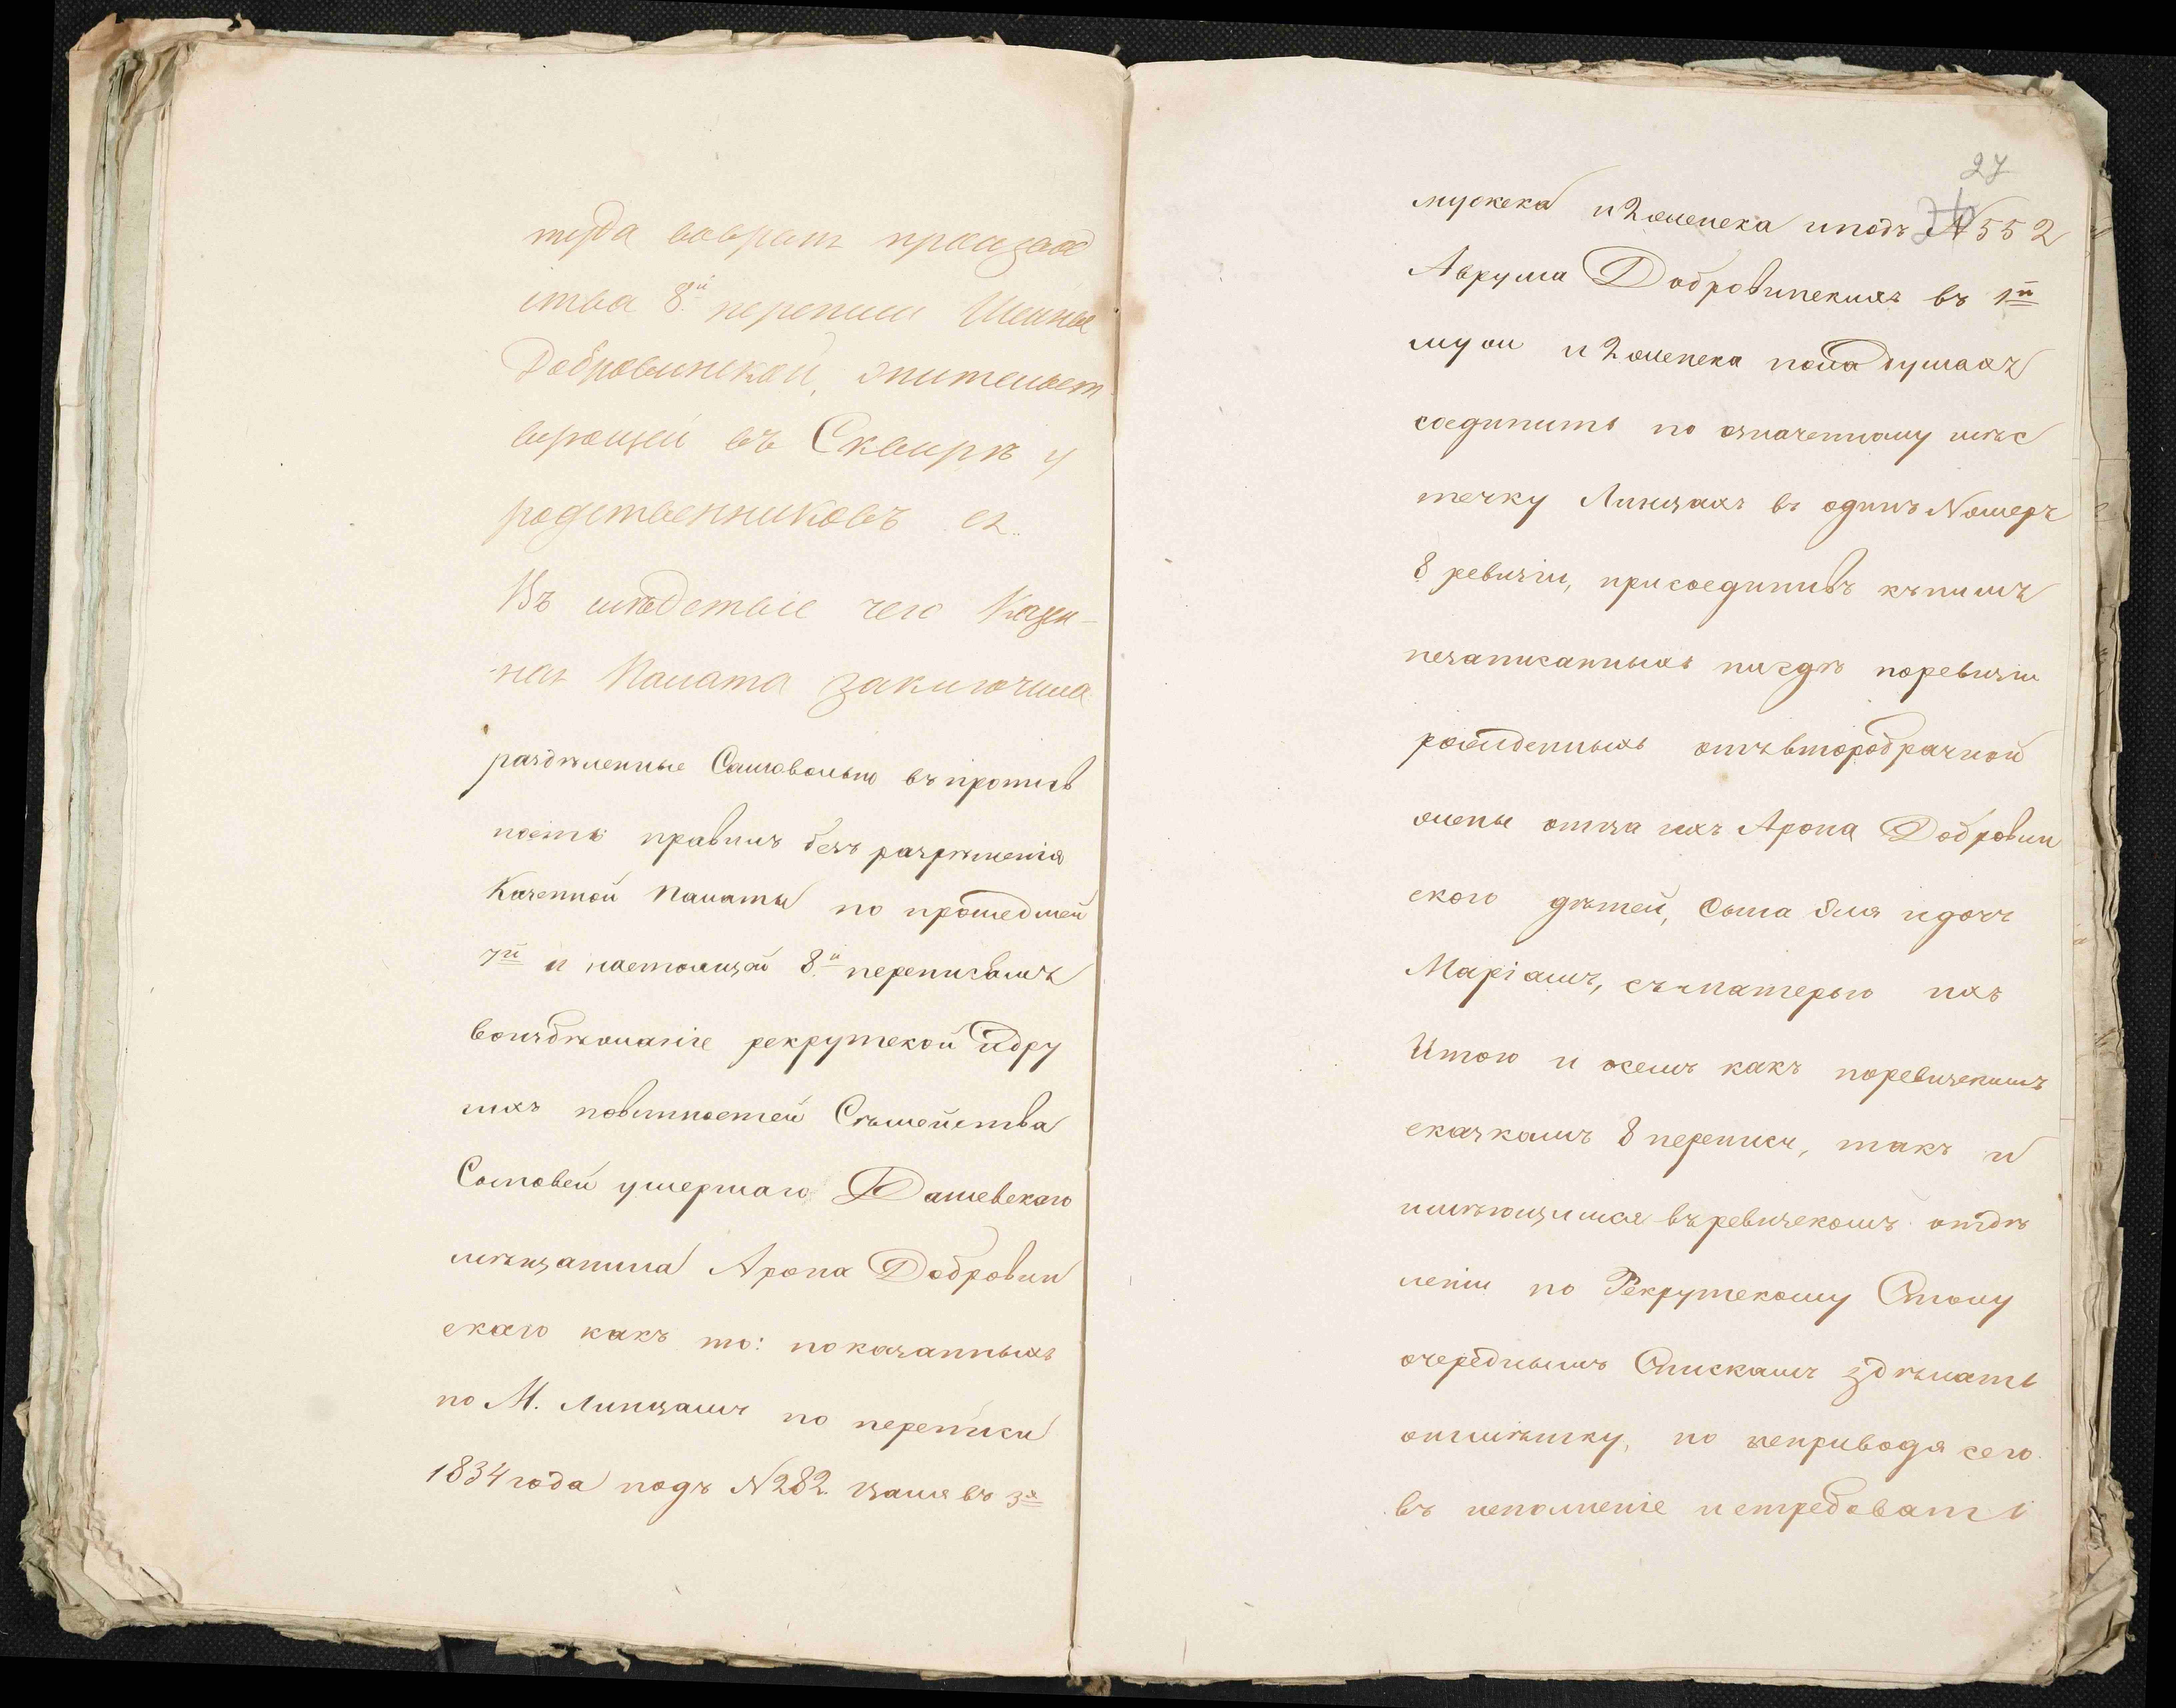 туда воврем производ
ства 8й переписи Шейнѣ
Добровинской, жительст
вующей въ Сквирѣ у
родственниковъ ея.
Въ слѣдствіе чего Казен-
ная Палата заключила
раздѣленные Самовольно въ против
ность правилъ безъ разрѣшенія
Казенной Палаты по прошедшей
7й и настоящей 8й переписямъ
воизбѣжаніе рекрутской идру
гихъ повинностей Сѣмейства
Сыновей умершаго Дашевскаго
мѣщанина Арона Добровин
скаго какъ то: показанныхъ
по М. Линцамъ по переписи
1834 года подъ №282. въ 3х
27
мужска и 2 женска иподъ №552
Аврума Добровинскихъ въ 1й
муж и 2 женска пола душахъ
соединить по означенному мѣс
течку Линцахъ въ одинъ Номеръ
8 ревизіи, присоединивъ кънимъ
незаписанныхъ нигдѣ поревизіи
рожденныхъ отъвторобрачной
жены отца ихъ Арона Добровин
ского дѣтей, Сына Эля идочь
Маріамъ, съматерью ихъ
Итою и осемъ какъ поревизскимъ
сказкамъ 8 переписи, такъ и
имѣющимся въревизскомъ отдѣ
леніи по Рекрутскому Столу
очереднымъ Спискамъ здѣлать
отмѣтку, но неприводя сего
въ исполненіе истребовать